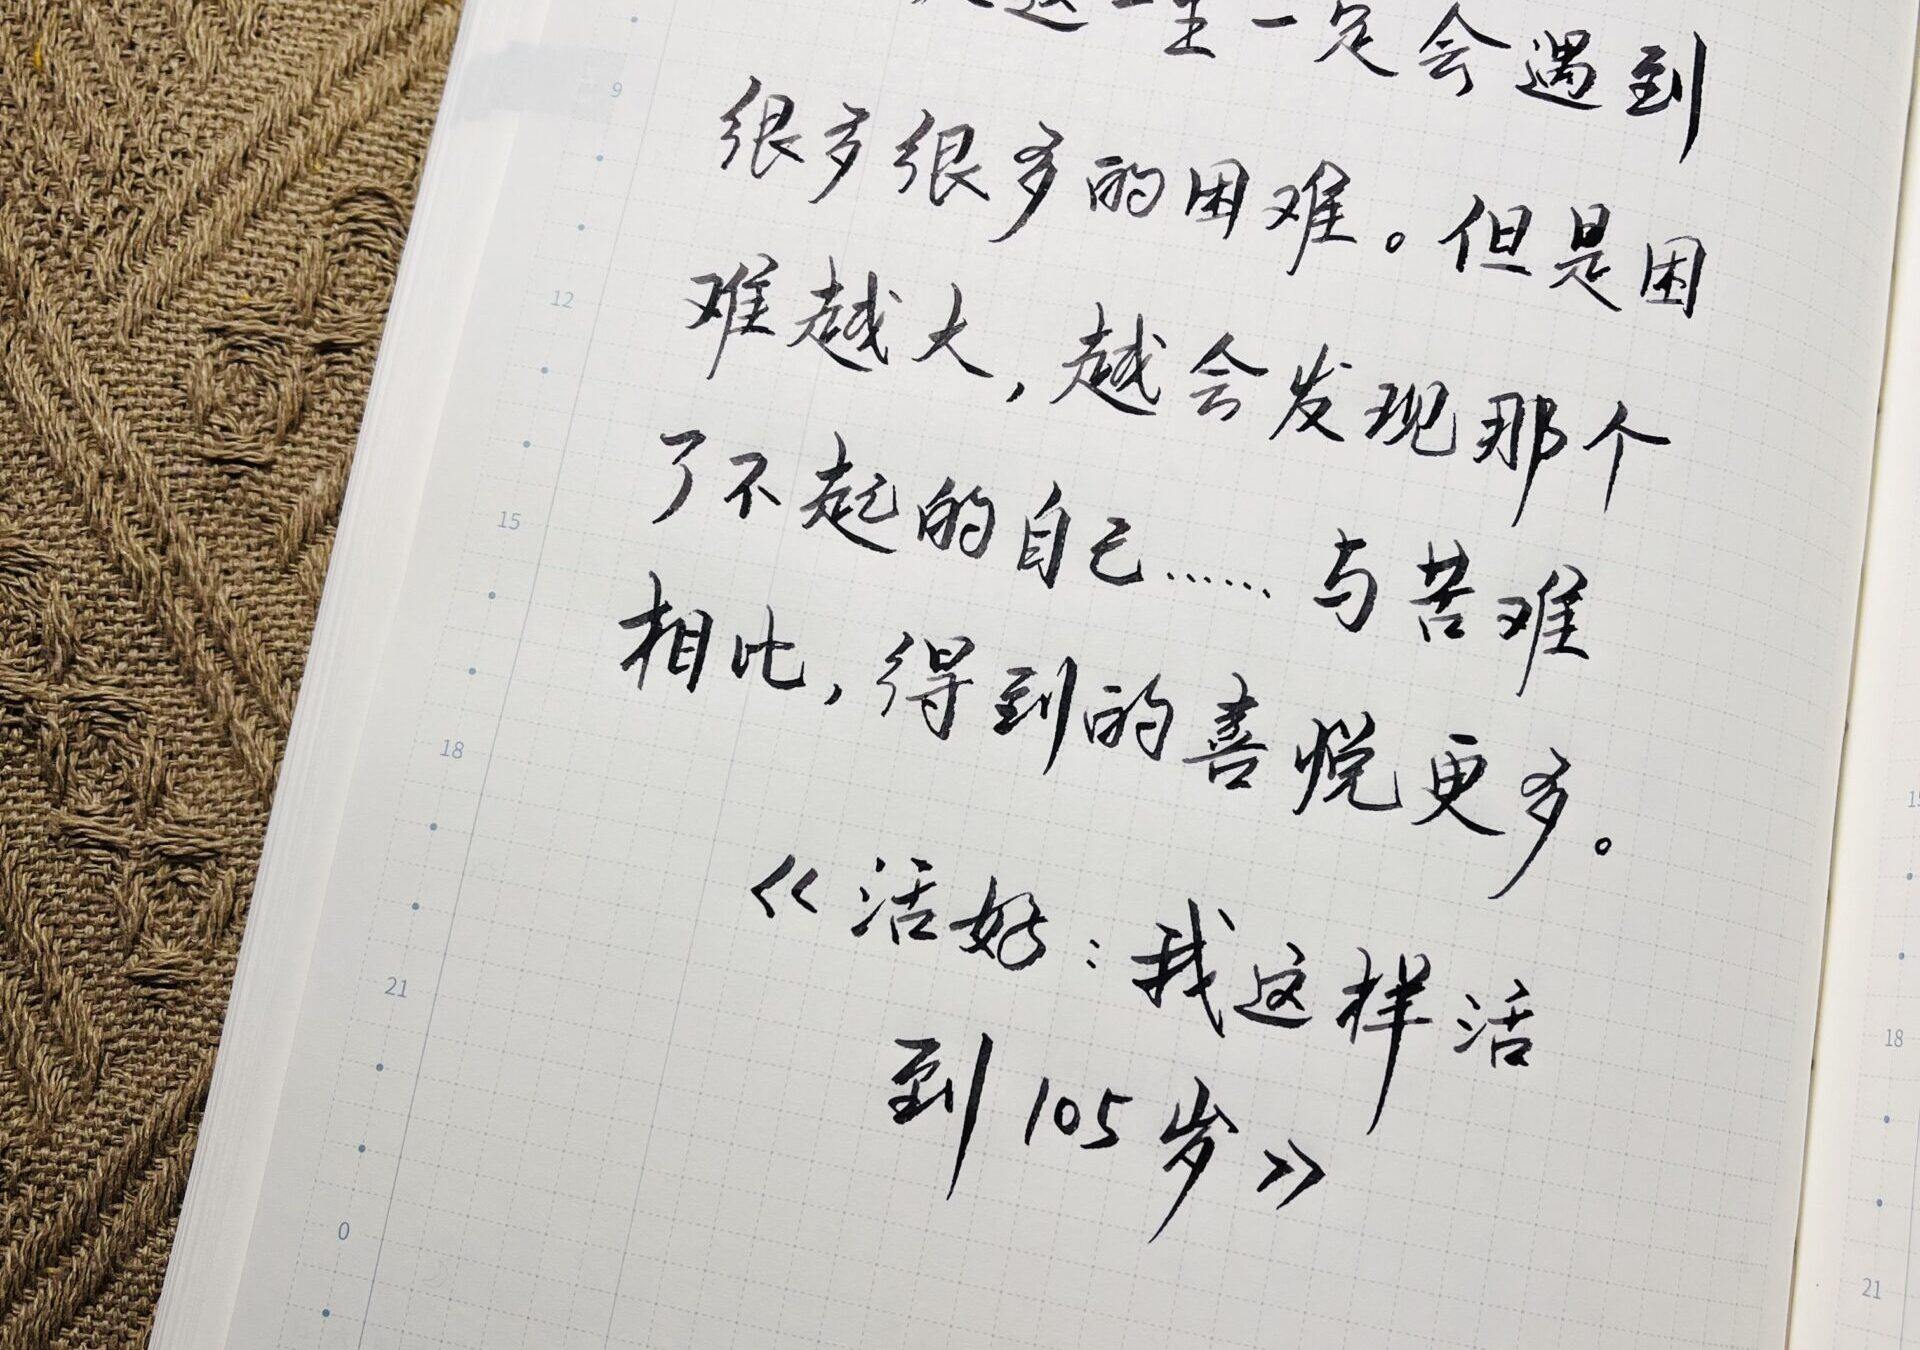 这一生一定会遇到
9
很多很多的困难。但是困
12
难越大，越会发现那个
15
了不起的自己……与苦难
相比，得到的喜悦更多。
18
《活好：我这样活
21
到105岁》
0
15
18
21